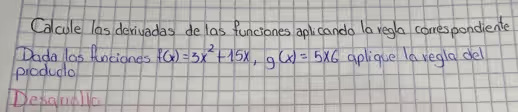 Calcule las derivadas de las funciones aplicando la regla correspondiente
Dada las funciones f(x)=3x²+15x, g(x)=5x6 aplique la regla del
producto
Desarrollo